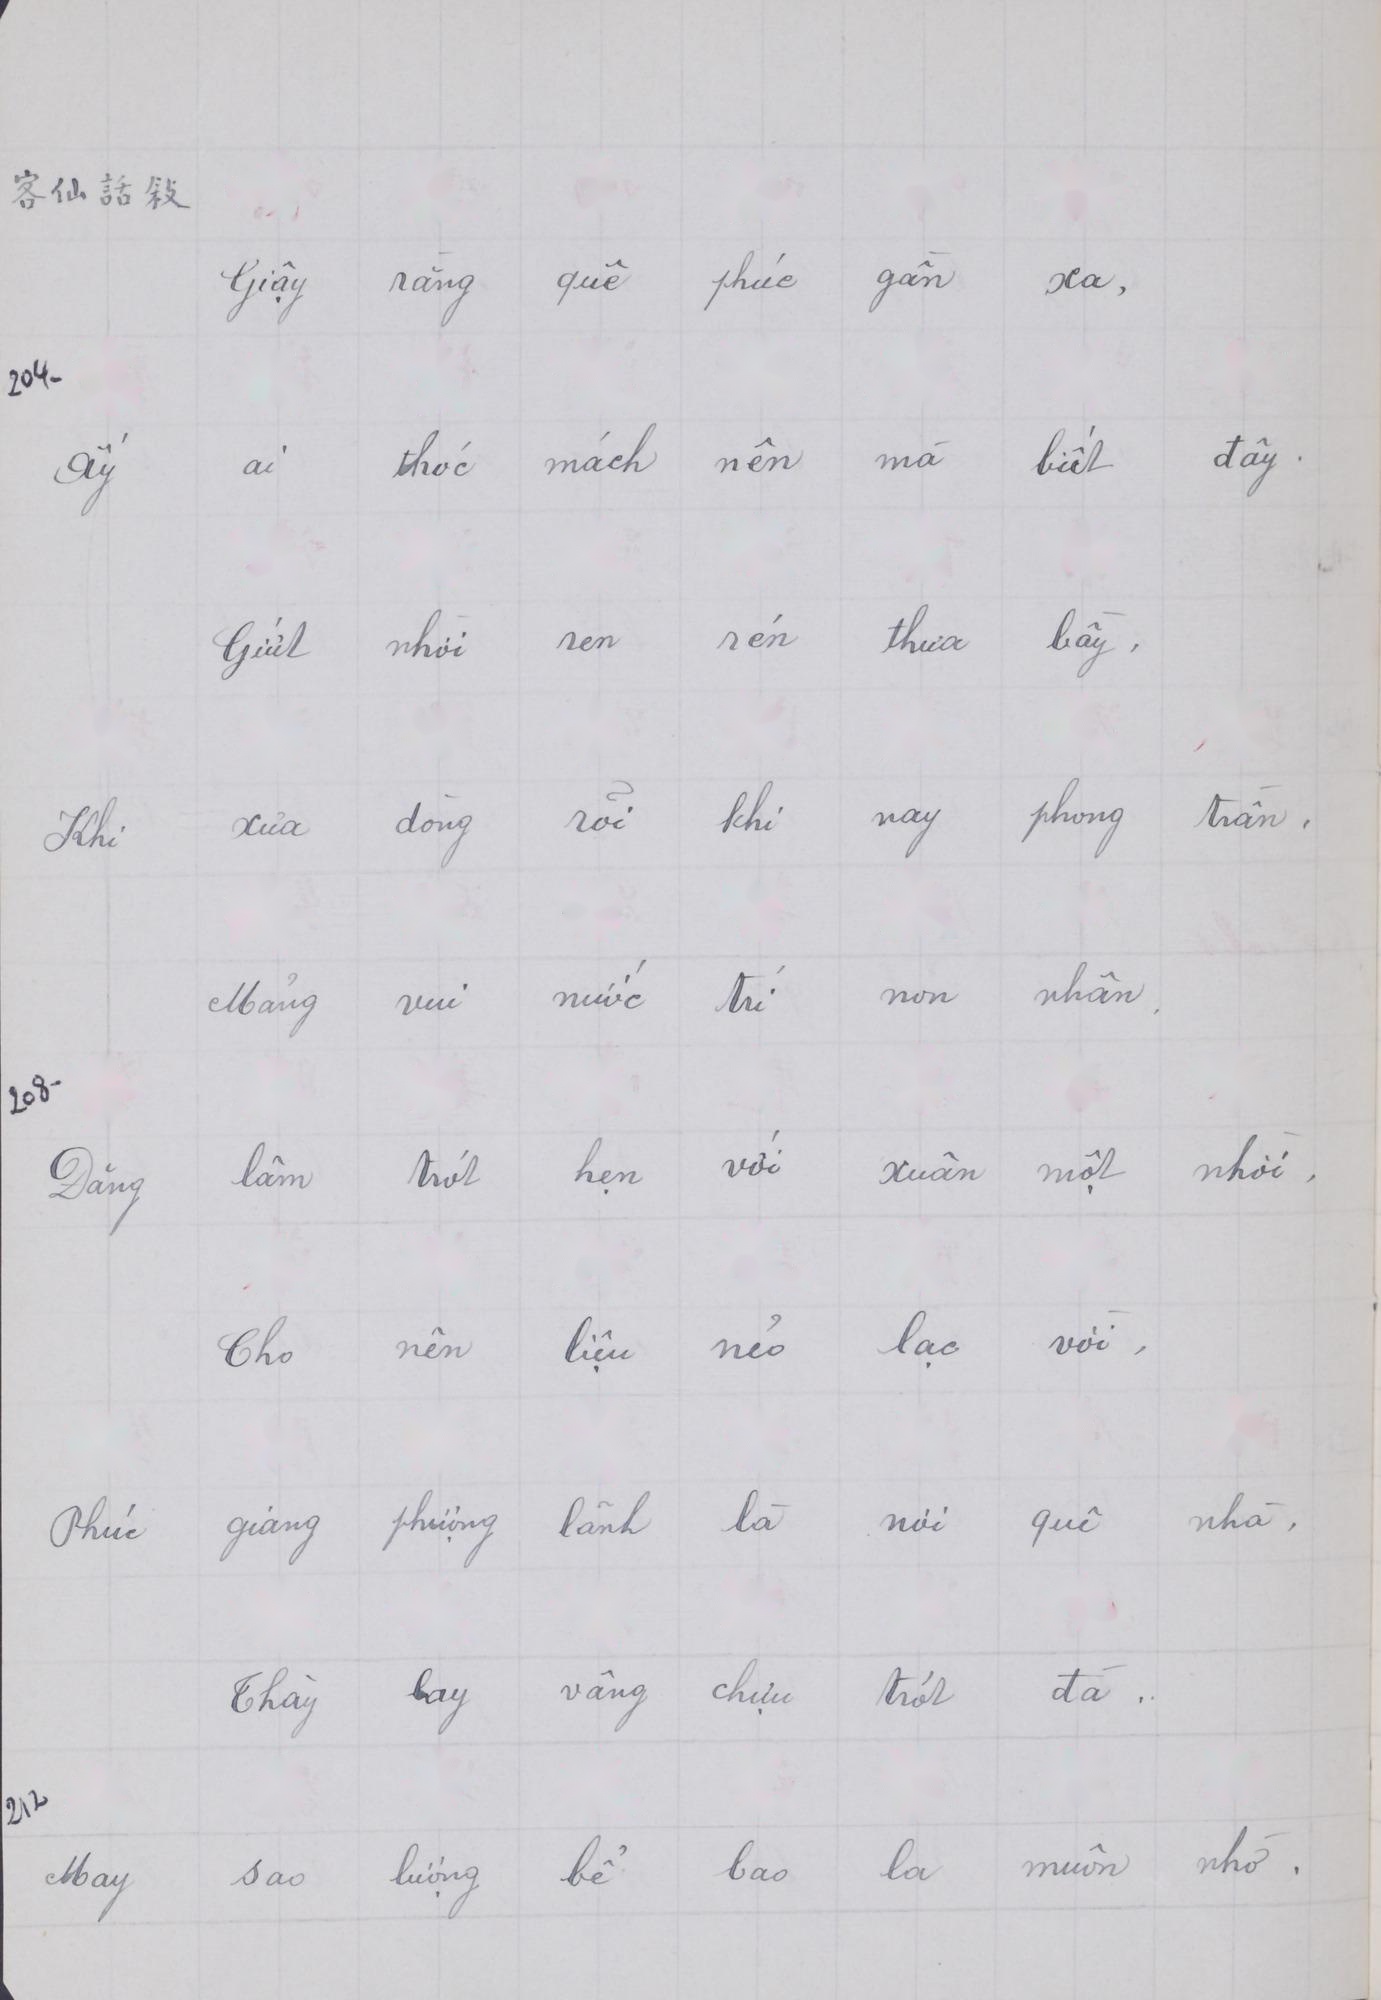 客仙話敍
Giậy rằng quê phúc gần xa,
204-
Ấy ai thóc mách nên mà biết đây.
Giứt nhời ren rén thưa bầy,
Khi xưa dòng rõi khi nay phong trần,
Mảng vui nước trí non nhân,
208-
Đăng lâm trót hẹn với xuân một nhời,
Cho nên liệu nẻo lạc vời,
Phúc giang phượng lãnh là nơi quê nhà,
Thày lay vâng chịu trót đà..
212
May sao lượng bể bao la muôn nhờ.